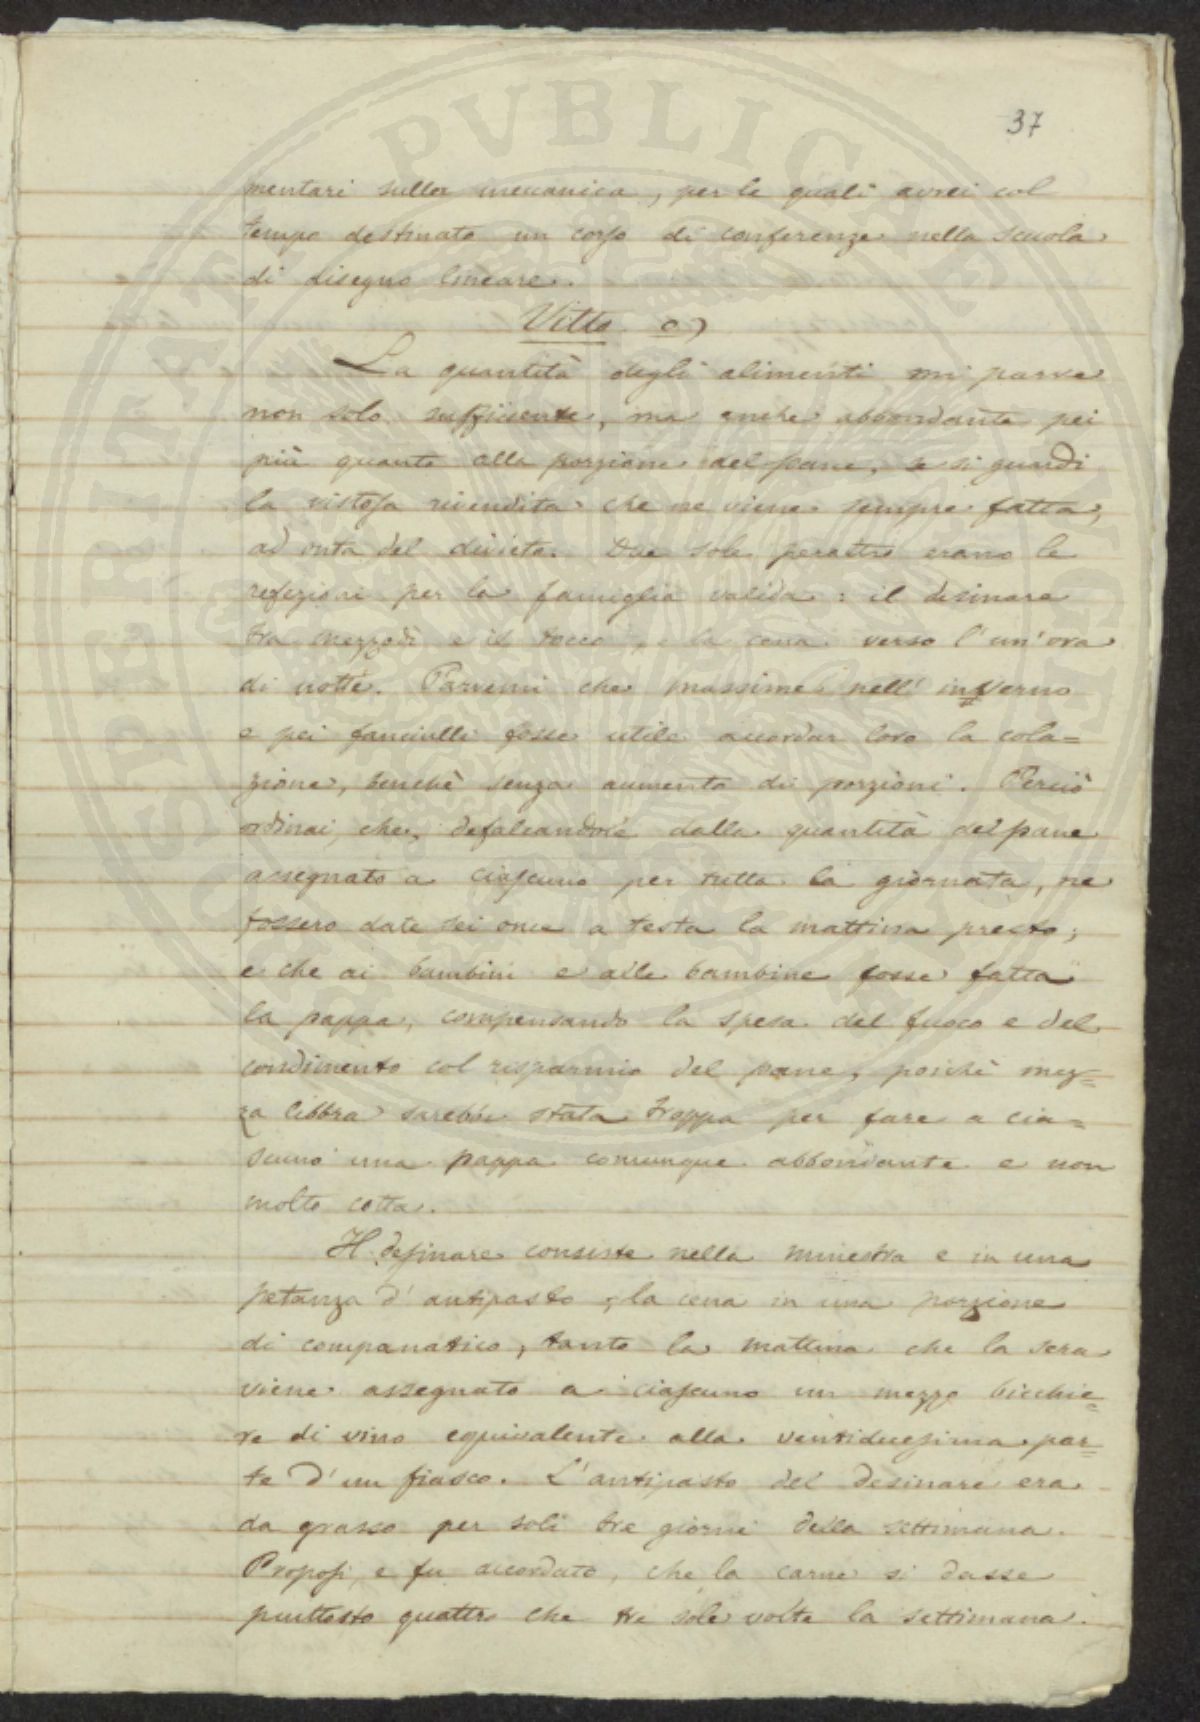 37
mentari sulla meccanica, per le quali avrei col
tempo destinato un corso di conferenze nella scuola
di disegno lineare.
Vitto c)
La quantità degli alimenti mi parve
non solo sufficiente, ma anche abbondante pei
più quanto alla porzione del pane, se si guardi
la vistosa rivendita che ne viene sempre fatta,
ad onta del divieto. Due sole peraltro erano le
refezioni per la famiglia valida: il desinare
tra mezzodì e il tocco, e la cena verso l'un'ora
di notte. Parvemi che massime nell'inverno
e pei fanciulli fosse utile accordar loro la cola=
zione, benchè senza aumento di porzioni. Perciò
ordinai, che, defalcandole dalla quantità del pane
assegnato a ciascuno per tutta la giornata, ne
fossero date sei once a testa la mattina presto;
e che ai bambini e alle bambine fosse fatta
la pappa, compensando la spesa del fuoco e del
condimento col risparmio del pane, poichè mez=
za libbra sarebbe stata troppa per fare a cia=
scuno una pappa comunque abbondante e non
molto cotta.
Il desinare consiste nella minestra e in una
petanza d'antipasto; la cena in una porzione
di companatico; tanto la mattina che la sera
viene assegnato a ciascuno un mezzo bicchie=
re di vino equivalente alla ventiduesima par=
te d'un fiasco. L'antipasto del desinare era
da grasso per soli tre giorni della settimana.
Proposi, e fu accordato, che la carne si dasse
piuttosto quattro che tre sole volte la settimana.
PVBLICAE